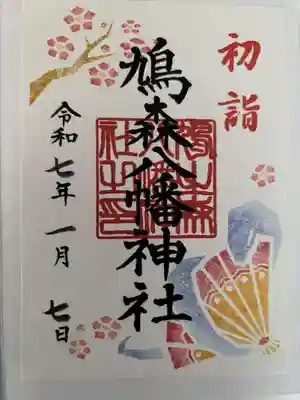 初詣
鳩森八幡神社
令和七年一月七日